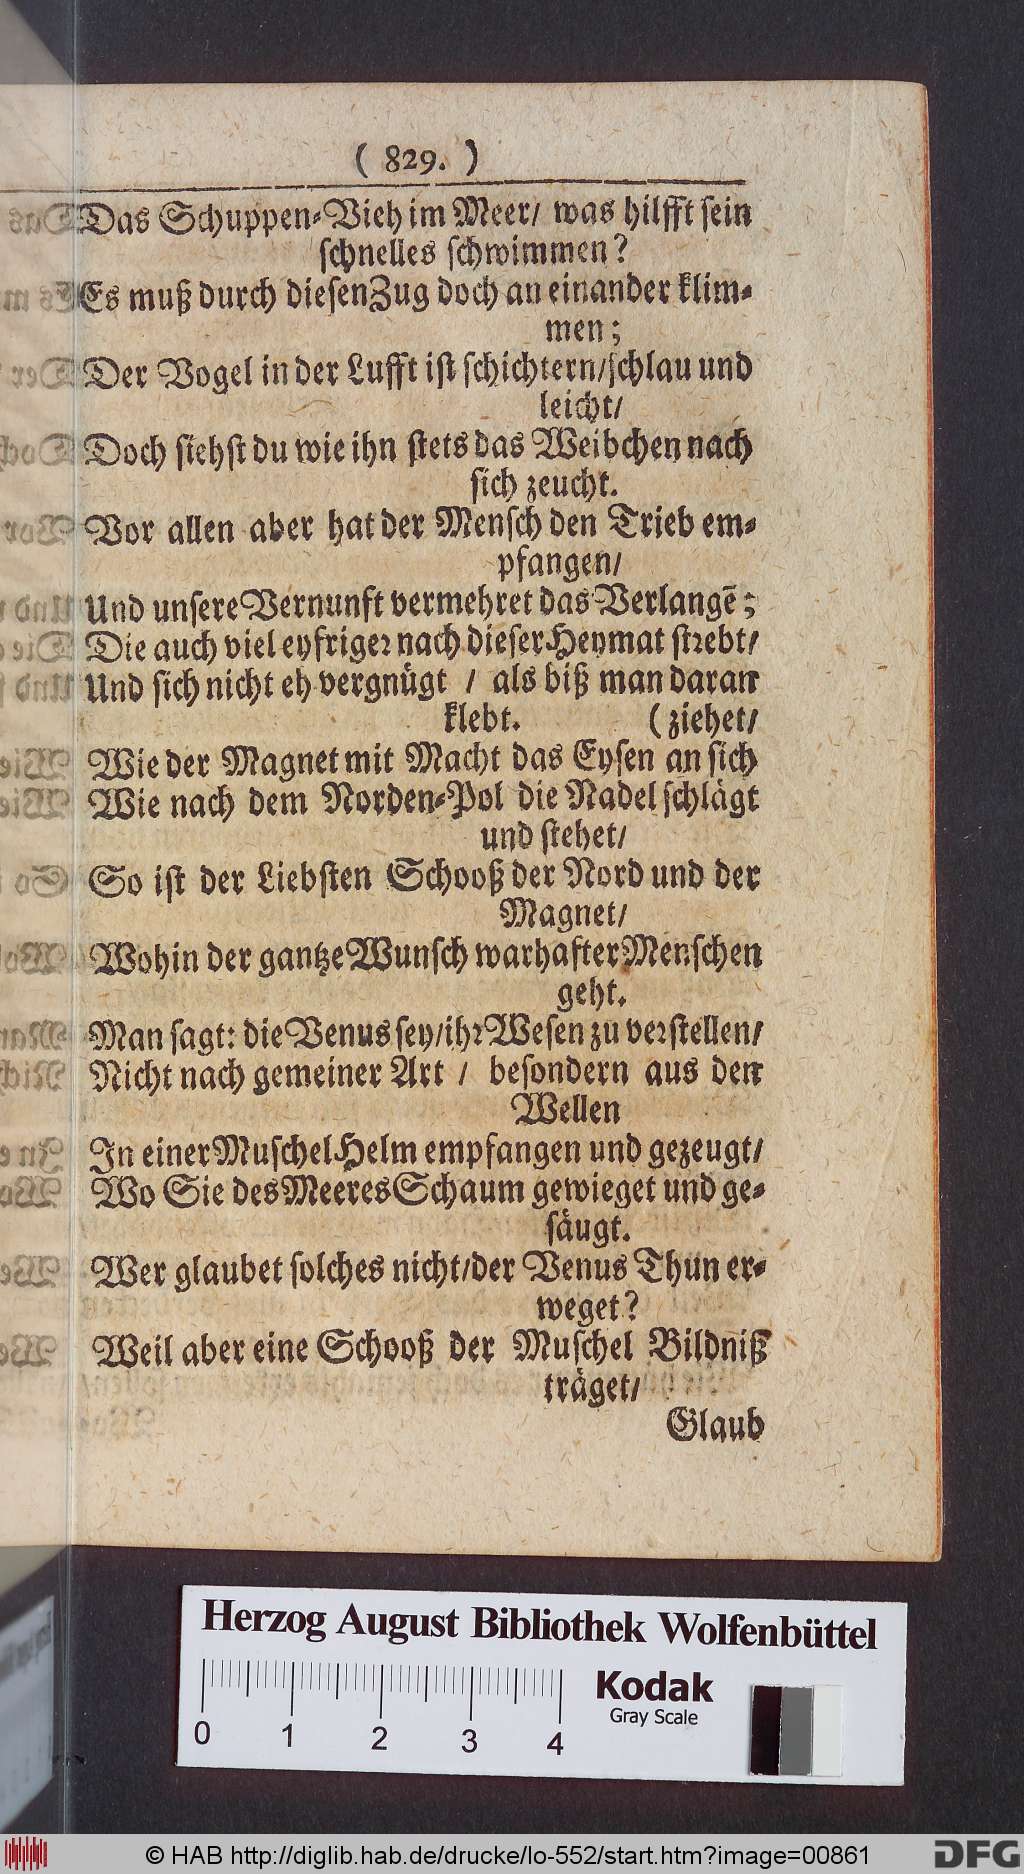 ( 829. )
Das Schuppen-Vieh im Meer/ was hilfft sein
schnelles schwimmen?
Es muß durch diesen Zug doch an einander klim-
men;
Der Vogel in der Lufft ist schichtern/schlau und
leicht/
Doch siehst du wie ihn stets das Weibchen nach
sich zeucht.
Vor allen aber hat der Mensch den Trieb em-
pfangen/
Und unsere Vernunft vermehret das Verlangẽ;
Die auch viel eyfriger nach dieser Heymat strebt/
Und sich nicht eh vergnügt / als biß man daran
klebt. (ziehet/
Wie der Magnet mit Macht das Eysen an sich
Wie nach dem Norden-Pol die Nadel schlägt
und stehet/
So ist der Liebsten Schooß der Nord und der
Magnet/
Wohin der gantze Wunsch warhafter Menschen
geht.
Man sagt: die Venus sey/ihr Wesen zu verstellen/
Nicht nach gemeiner Art / besondern aus den
Wellen
In einer Muschel Helm empfangen und gezeugt/
Wo Sie des Meeres Schaum gewieget und ge-
säugt.
Wer glaubet solches nicht/der Venus Thun er-
weget?
Weil aber eine Schooß der Muschel Bildniß
träget/
Glaub
Herzog August Bibliothek Wolfenbüttel
0 1 2 3 4
Kodak
Gray Scale
© HAB http://diglib.hab.de/drucke/lo-552/start.htm?image=00861
DFG